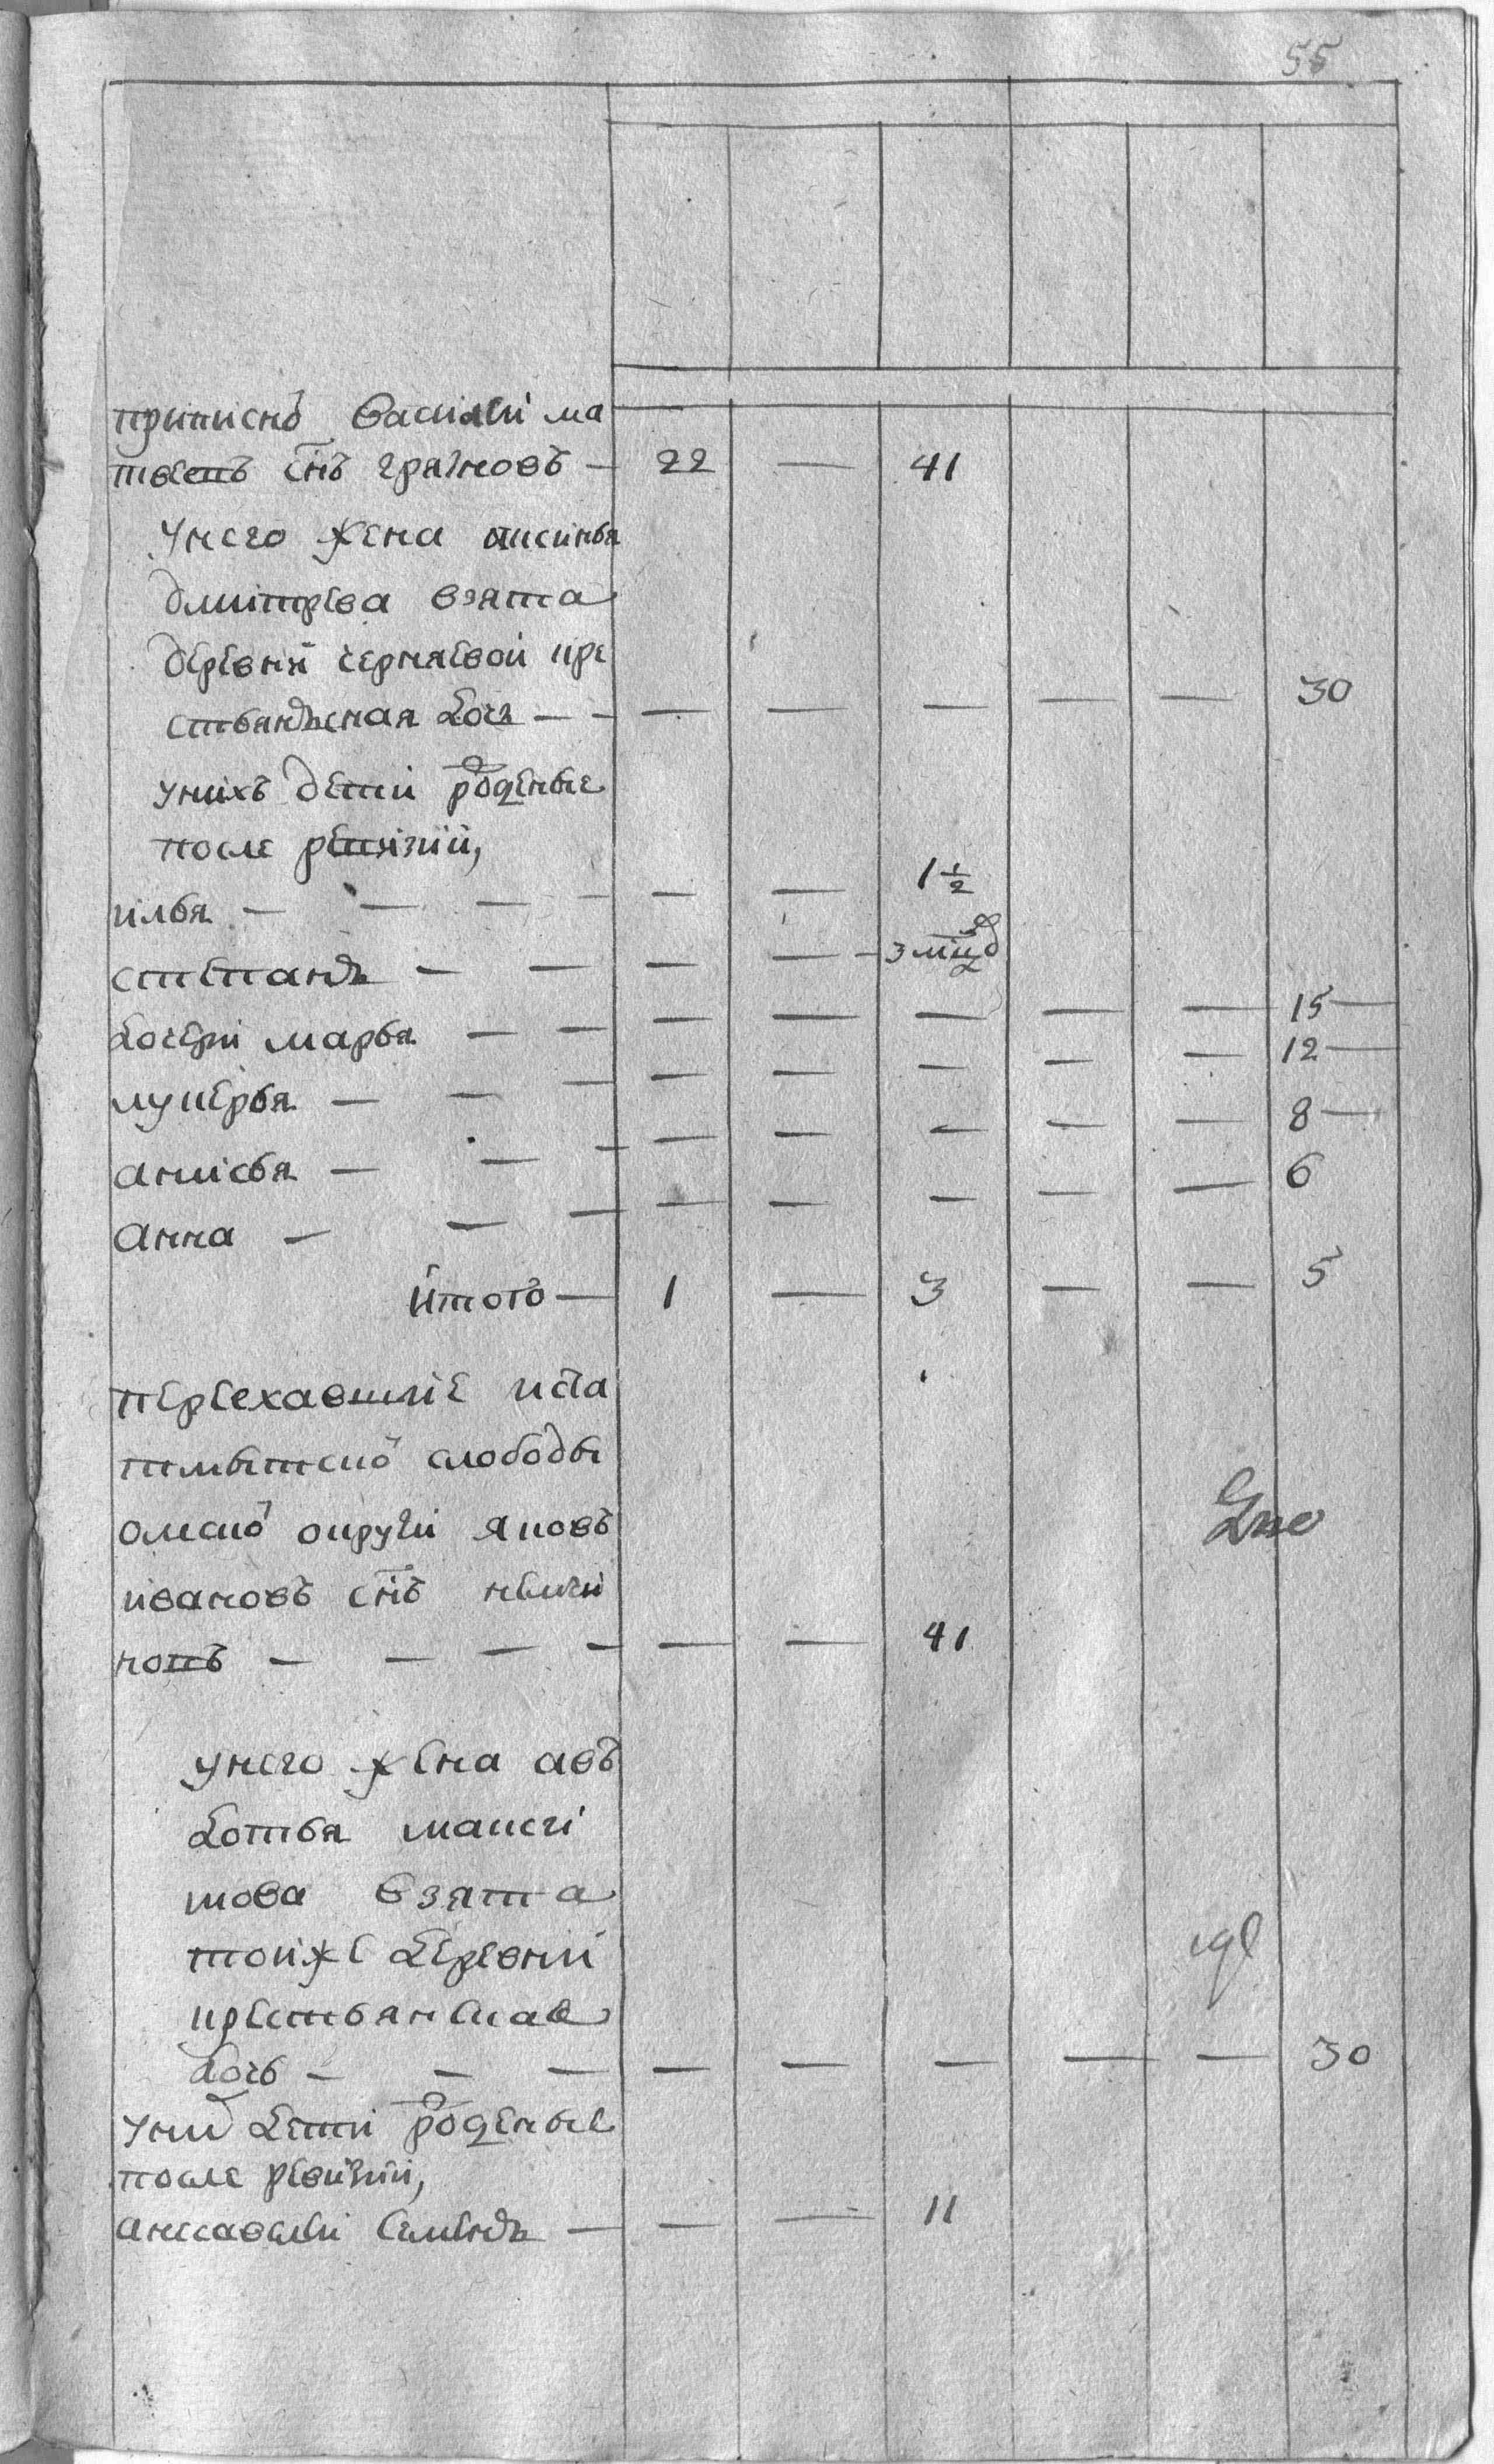 55
приписнъ василеи ма
твеевъ снъ грязновъ — 22 — 41
унего жена аксинья
дмитрева взята
деревни черняевой кре
стьянская дочь — — — — — — — 30
унихъ дети роженые
после ревизии,
илья — — — — — — 1½
степанъ — — — — — 3 мцд
дочери марья — — — — — — — 15 —
лукерья — — — — — — — — 12 —
анисья — — — — — — — — 8 —
анна — — — — — — — — 6
итого — 1 — 3 — — 5
переехавшие иста
омской округи яковъ
ивановъ снъ
новъ — — — — — — 41
унего жена авъ
дотья
това взята
тойже деревни
крестьянская
дочь — — — — — — — — 30
уни дети роженые
после ревизии,
семенъ — — — 11